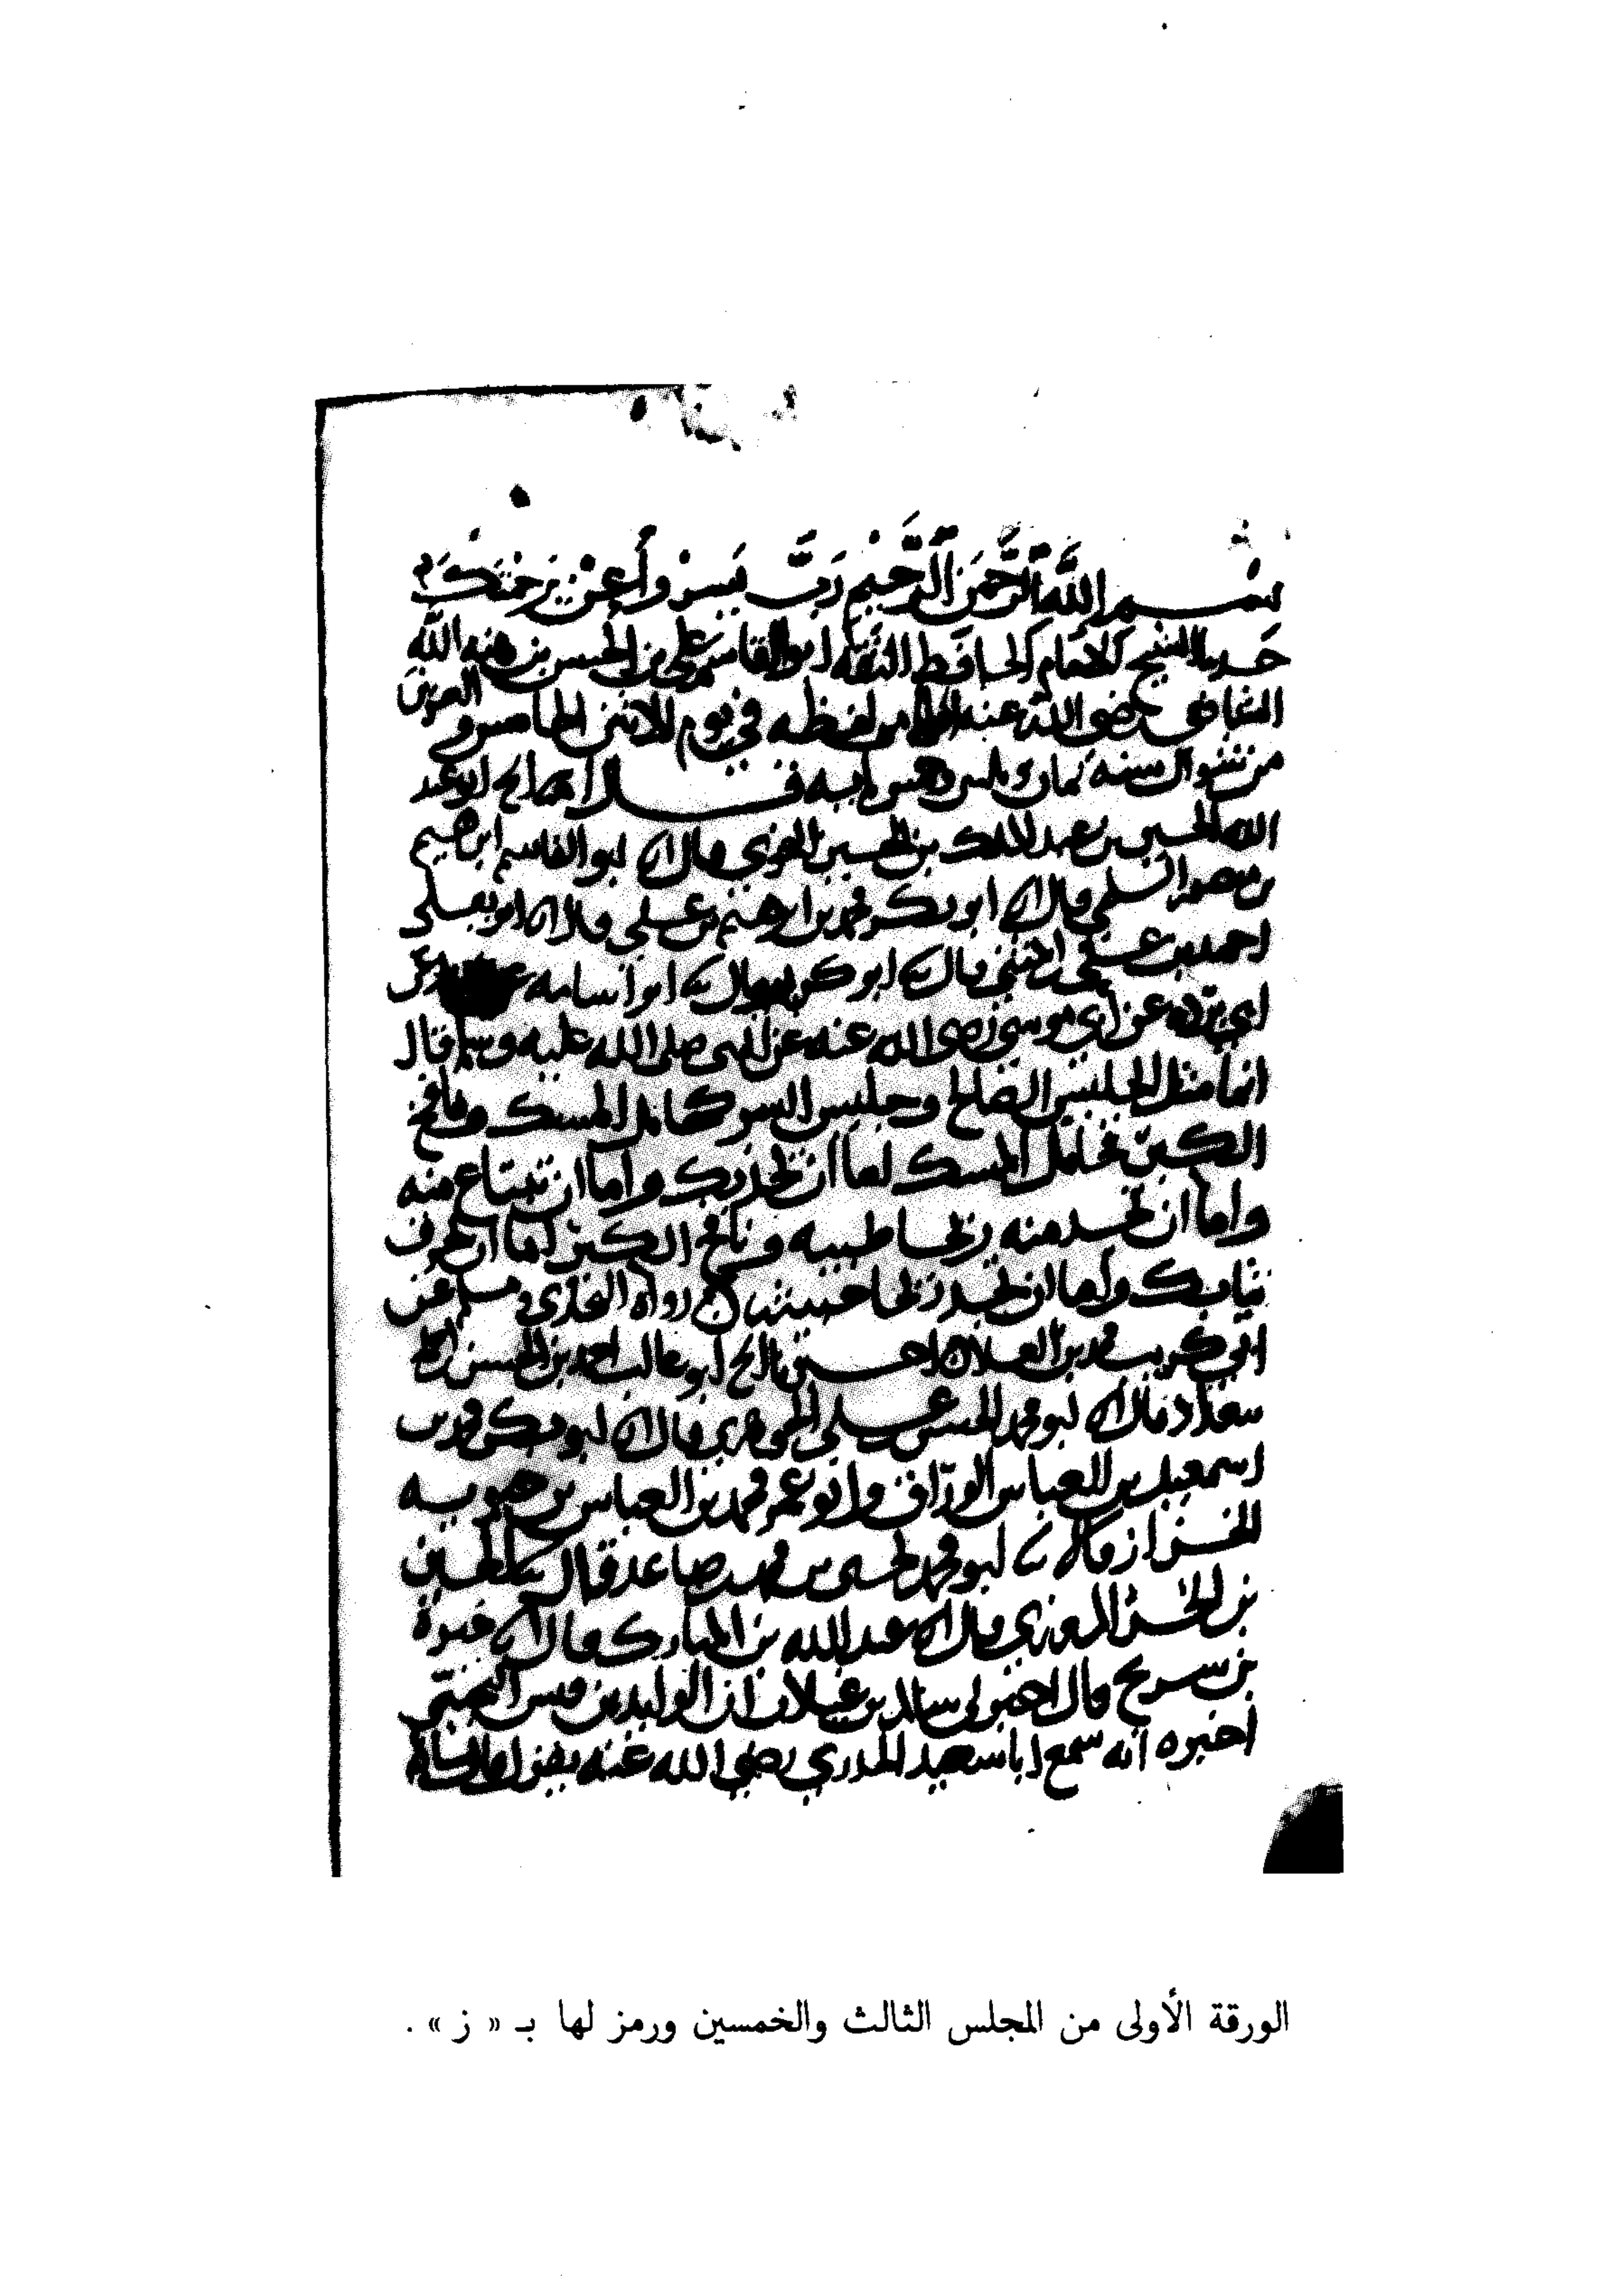 بسم الله الرحمن الرحيم رب يسر وأعن برحمتك
حدثنا الشيخ الامام الحافظ الثقة ابو القاسم علي بن الحسن بن هبة الله
الشافعي رضي الله عنه من لفظه في يوم الاثنين الخامس و العشرين
من شوال سنه ثمان و ثلثين وخمس مايه قال ابو عبد
الله الحسين بن عبد الملك بن الحسين قال ابو القاسم ابرهيم
بن منصور السلمي قال ابو بكر محمد بن ابرهيم بن علي قال ابو يعلى
احمد بن علي بن المثنى قال ابو كريب قال ابو اسامه عن
ابي برده عن ابي موسى رضي الله عنه عن النبي صلى الله عليه وسلم قال
انما مثل الجليس الصالح وجليس السو كحامل المسك ونافخ
الكير فحامل المسك اما ان يحذيك واما ان تبتاع منه
واما ان تجد منه ريحا طيبه ونافخ الكير اما ان يحرق
ثيابك واما ان تجد ريحا خبيثه رواه البخاري ومسلم عن
ابي كريب محمد بن العلا اخبرنا ابو غالب احمد بن الحسن
ببغداد قال ابو محمد الحسن بن علي الجوهري قال ابو بكر محمد بن
اسمعيل بن العباس الوراق وابو عمر محمد بن العباس بن حيويه
الخزاز قالا ابو محمد يحيى بن محمد بن صاعد قال الحسين
بن الحسن المروزي قال عبد الله بن المبارك قال حيوة
بن شريح قال اخبرني سالم بن غيلان ان الوليد بن قيس التجيبي
اخبره انه سمع ابا سعيد الخدري رضي الله عنه يقول
الورقة الأولى من المجلس الثالث والخمسين ورمز لها بـ « ز » .